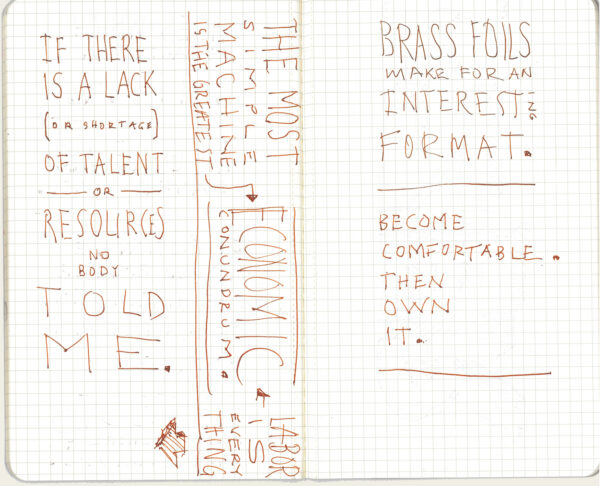 IF THERE
IS A LACK
(OR SHORTAGE)
OF TALENT
OR
RESOURCES
NO
BODY
TOLD
ME.
THE MOST
SIMPLE
MACHINE
IS THE GREATEST
ECONOMIC
CONUNDRUM.
LABOR
IS
EVERY
THING
BRASS FOILS
MAKE FOR AN
INTERESTING
FORMAT.
BECOME
COMFORTABLE.
THEN
OWN
IT.